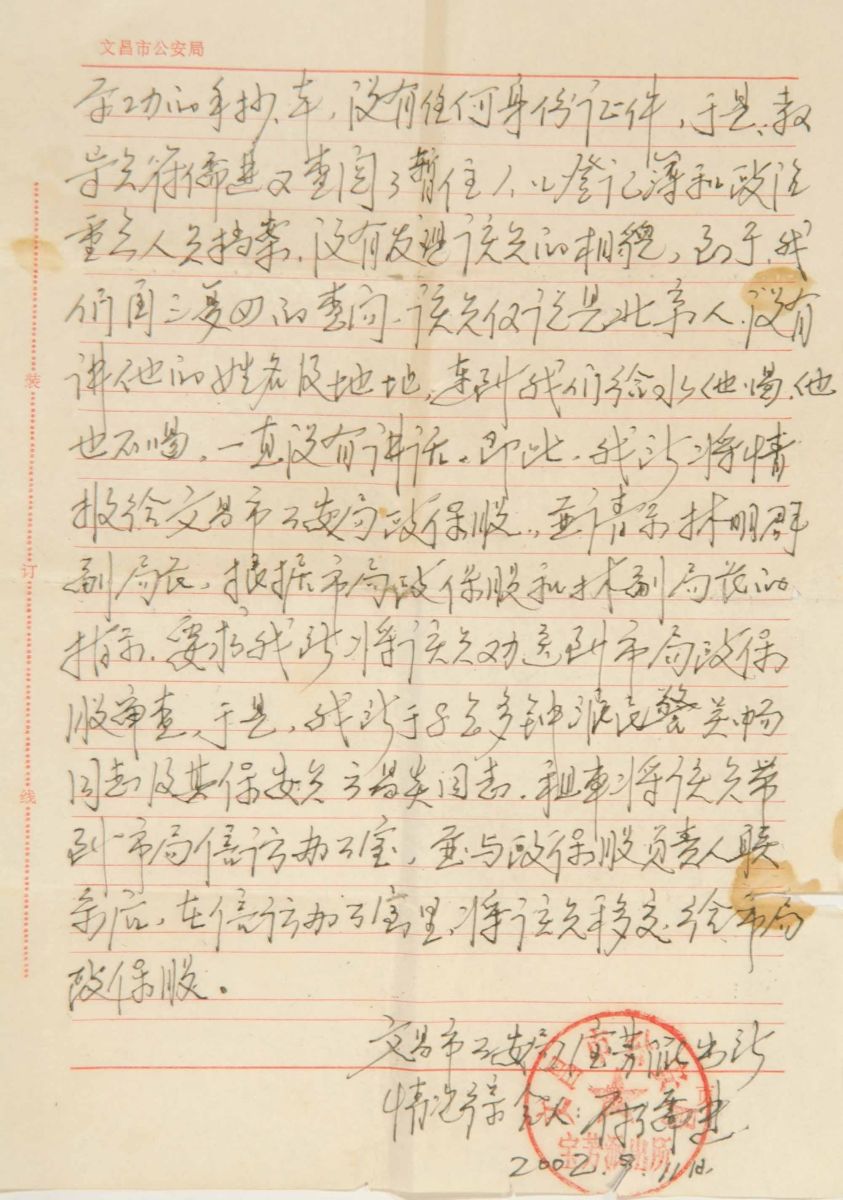 文昌市公安局
功的手抄本,没有任何身份证件,于是,教
导员符儒进又查阅了暂住人口登记簿和政治
重点人员档案,没有发现该员的相貌,至于,我
们再三反复的查问,该员仅说是北京人,没有
讲他的姓名及地址,连到我们给水他喝,他
也不喝,一直没有讲话。即此,我所将情
报给文昌市公安局政保股,并请示林明群
副局长,根据市局政保股和林副局长的
指示,要求我所将该员劝送到市局政保
股审查,于是,我所于8点多钟派民警吴畅
同志及其保安员同志,租车将该员带
到市局信访办公室,并与政保股负责人联
系后,在信访办公室里将该员移交给市局
政保股。
文昌市公安局宝芳派出所
情况介人:符儒进
2002.9.11日
宝芳派出所
装
订
线